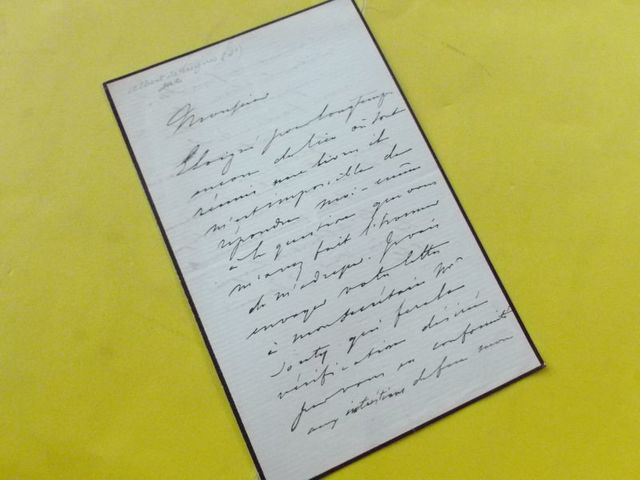 Albert de
duc
Monsieur
Eloigné pour longtemps
encore du lieu où sont
réunis mes livres il
m'est impossible de
répondre moi-même
à la question que vous
m'avez fait l'honneur
de m'adresser. Je vais
envoyer votre lettre
à mon secrétaire Mr
Souty qui fera la
vérification désirée
par vous en conformité
aux intentions de feu mon